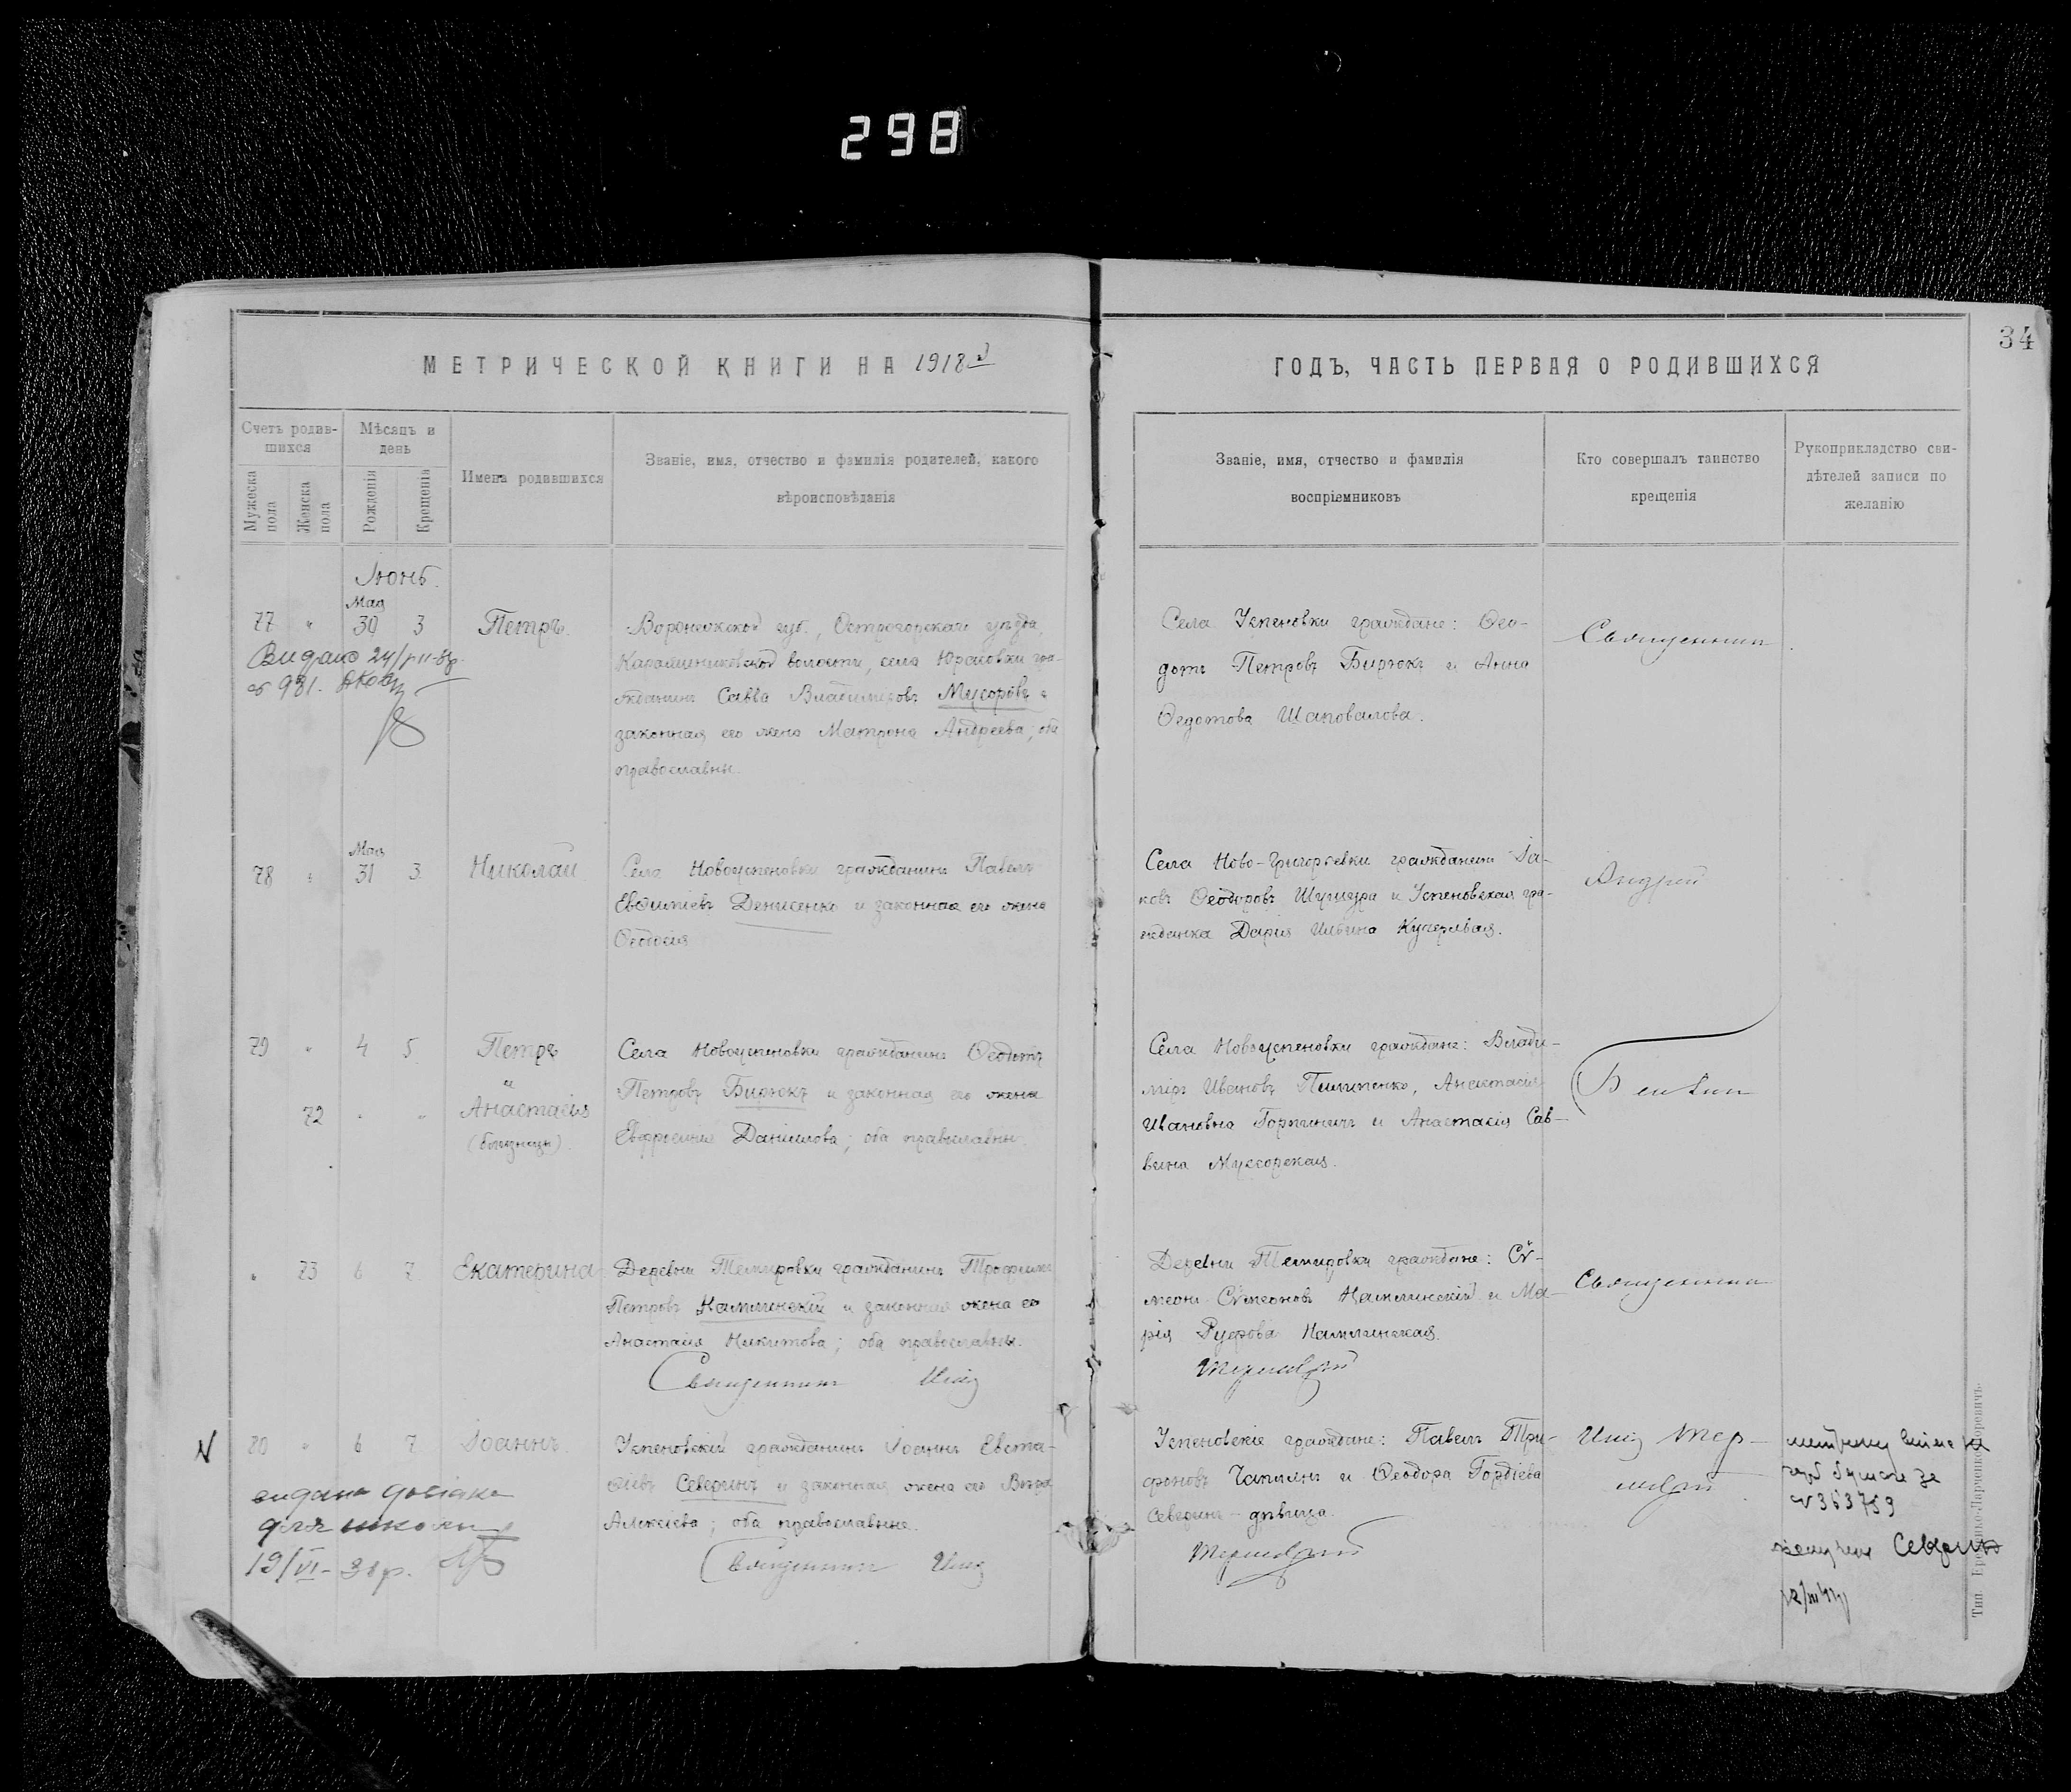 298
34
МЕТРИЧЕСКОЙ КНИГИ НА 1918й
ГОДЪ, ЧАСТЬ ПЕРВАЯ О РОДИВШИХСЯ
Счетъ родив-
шихся
Мужеска пола
Женска пола
Мѣсяцъ и
день
Рожденія
Крещенія
Имена родившихся
Званіе, имя, отчество и фамилія родителей, какого
вѣроисповѣданія
Званіе, имя, отчество и фамилія
воспріемниковъ
Кто совершалъ таинство
крещенія
Рукоприкладство сви-
дѣтелей записи по
желанію
Іюнь.
Мая
77 " 30 3 Петръ.
Воронежской губ., Острогорскаго уѣзда,
волости, села Юрасовки гра-
жданинъ Савва Владимировъ Мусоровъ и
законная его жена Матрона Андреева; оба
православны.
Видано 24/
№ 931.
Села Успеновки граждане: Ѳео-
дотъ Петровъ Бирюкъ и Анна
Ѳедотова Шаповалова.
Священникъ
Мая
78 " 31 3 Николай
Села Новоуспеновки гражданинъ Павелъ
Евѳиміевъ Денисенко и законная его жена
Ѳеодосія
Села Ново-Григорьевки гражданинъ Іа-
ковъ Ѳеодоровъ и Успеновская гра-
жданка Дарія Ильина Кучерявая.
Андрей
79 " 4 5 Петръ
и
72 " " Анастасія
(близнецы).
Села Новоуспеновки гражданинъ Ѳеодотъ
Петровъ Бирюкъ и законная его жена
Евфросинія Даніилова; оба православны.
Села Новоуспеновки граждане: Влади-
міръ Ивановъ Пилипенко, Анастасія
Ивановна Горпиничъ и Анастасія Сав-
вина Мусорская.
" 73 6 7 Екатерина
Деревни Темировки гражданинъ Трофимъ
Петровъ Камлинскій и законная жена его
Анастасія Никитова; оба православны.
Священникъ
Деревни Темировки граждане: Сѵ-
меонъ Сѵмеоновъ Камлинскій и Ма-
рія Руфова Камлинская.
Священникъ
N
80 " 6 7 Іоаннъ.
Успеновскій гражданинъ Іоаннъ Евста-
ѳіевъ Северинъ и законная жена его Вѣра
Алексіева; оба православные.
Священникъ
видана довідка
для школи
19/VI-38р.
Успеновскіе граждане: Павелъ Три-
фоновъ Чаплинъ и Ѳеодора Гордіева
Северинъ - дѣвица.
№ 363759
Тип. Бр.